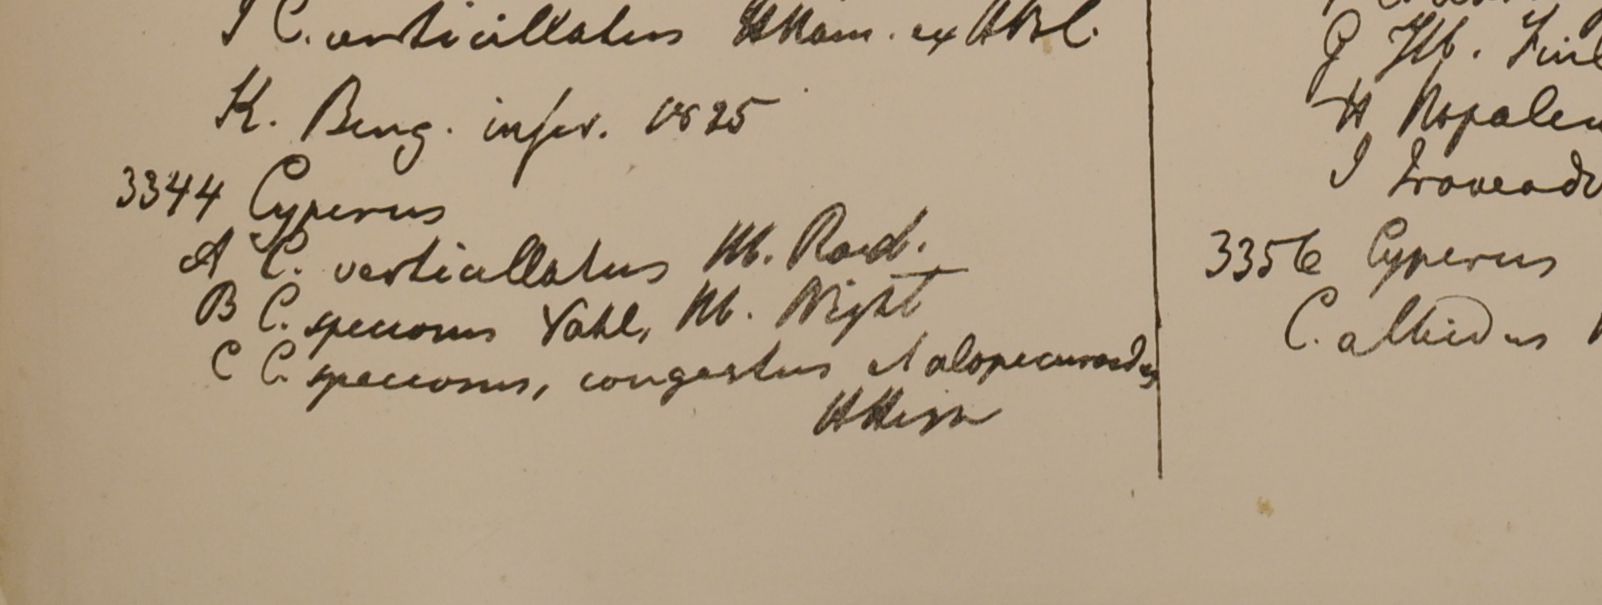 I C. verticillatus HHam. ex HBC.
K. Beng. infer. 1825
3344 Cyperus
A C. verticillatus Hb. Roxb.
B C. speciosus Vahl, Hb. Wight
C C. speciosus, congestus et alopecuroides
HHeyn
G Hb. Finl
H Nepalen
I
3356 Cyperus
C. albidus